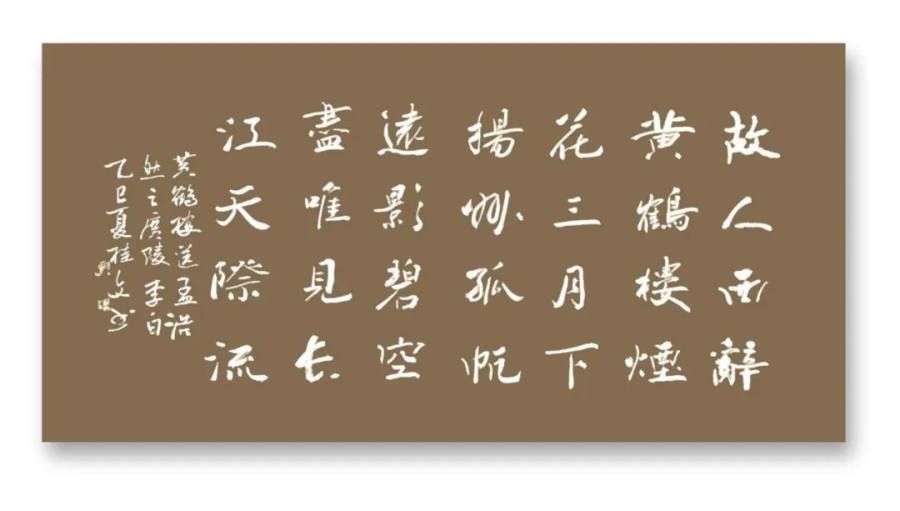 故人西辭
黄鶴樓煙
花三月下
揚州孤帆
遠影碧空
盡唯見長
江天際流
黄鶴樓送孟浩
然之廣陵李白
乙巳夏桂文书